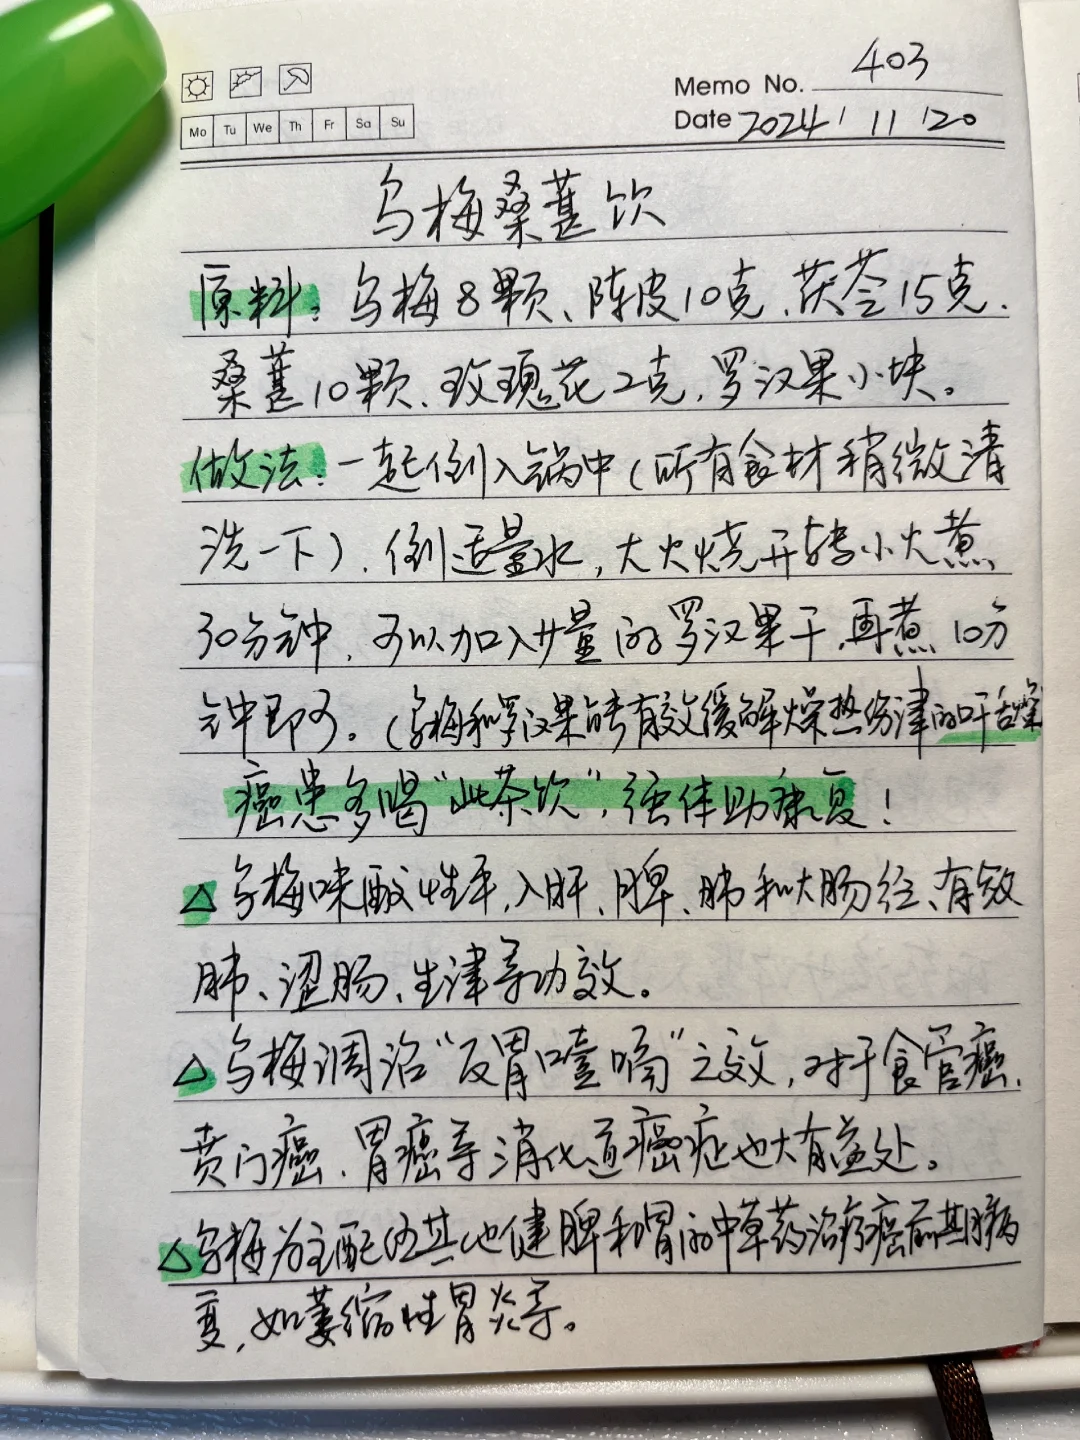 403
Memo No.
Date 2024 / 11 / 20
Mo Tu We Th Fr Sa Su
乌梅桑葚饮
原料：乌梅8颗、陈皮10克、茯苓15克、
桑葚10颗、玫瑰花2克，罗汉果小块。
做法：一起倒入锅中（所有食材稍微清
洗一下），倒适量水，大火烧开转小火煮
30分钟，可以加入少量的罗汉果干，再煮10分
钟即可。（乌梅和罗汉果能有效缓解燥热伤津的口干舌燥
癌患多喝“此茶饮”，强体助康复！
△乌梅味酸性平，入肝、脾、肺和大肠经、有敛
肺、涩肠、生津等功效。
△乌梅调治“反胃噎嗝”之效，对于食管癌、
贲门癌、胃癌等消化道癌症也大有益处。
△乌梅为主配伍其他健脾和胃的中草药治疗癌前期病
变，如萎缩性胃炎等。